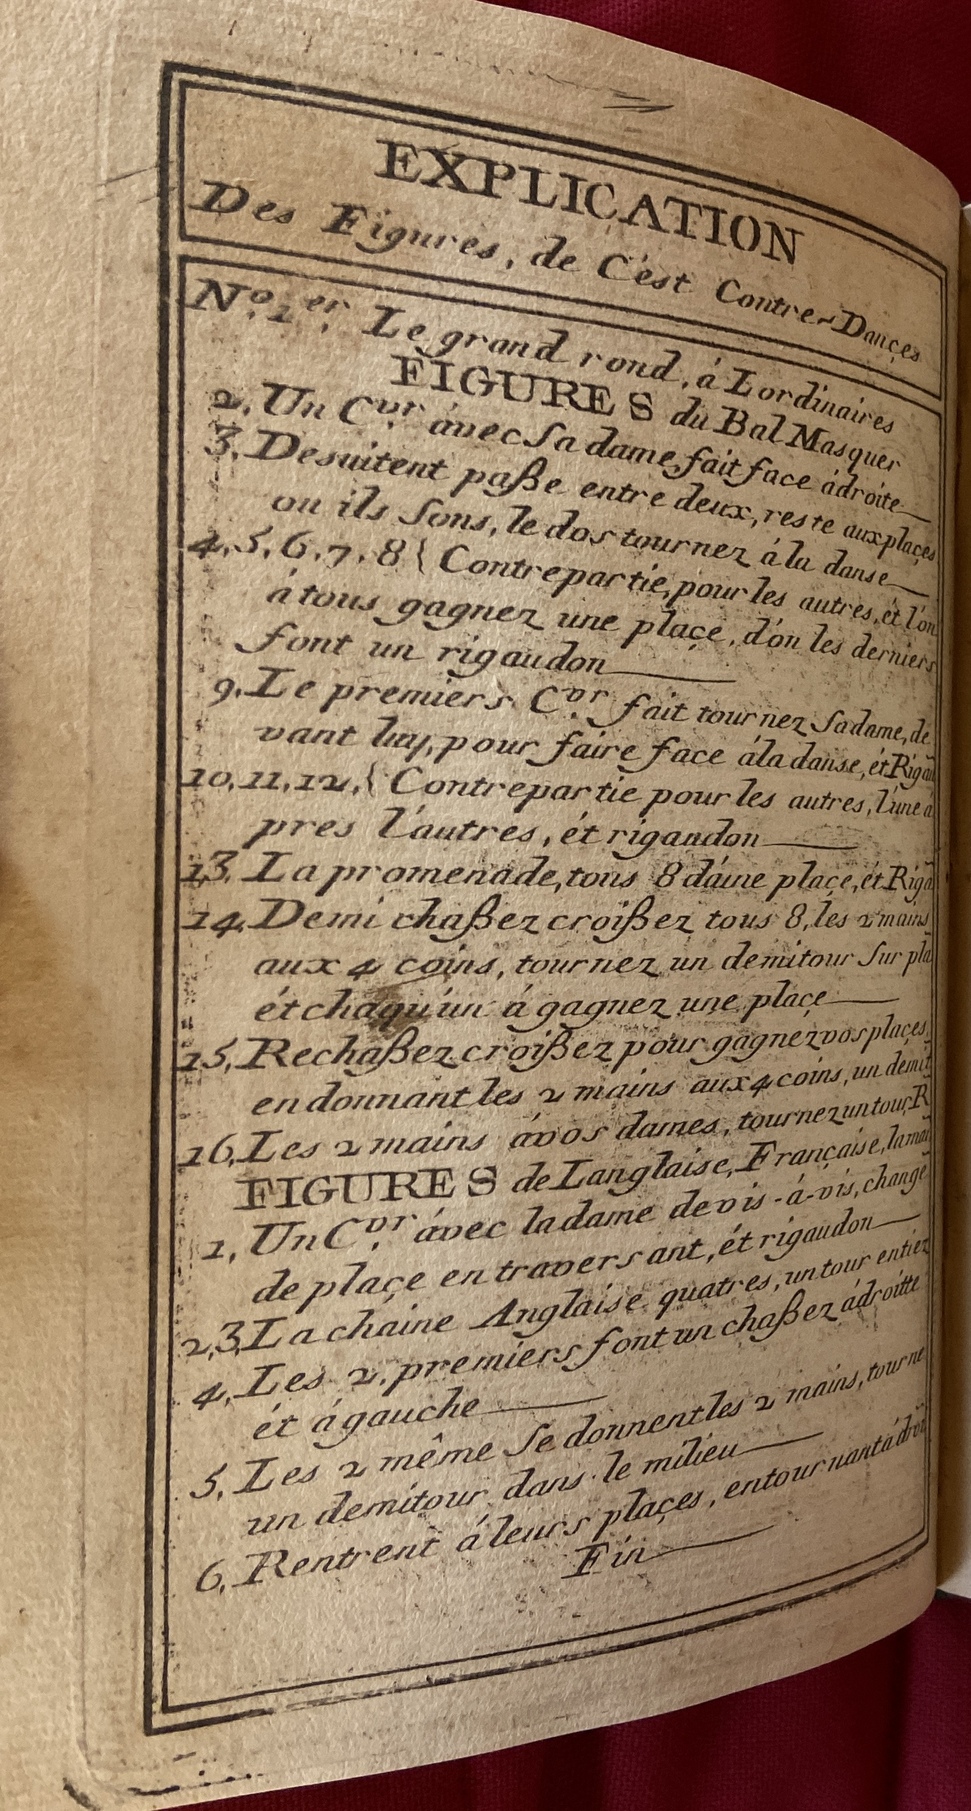 EXPLICATION
Des Figures, de C'est Contre-Dançes
No. 1er. Le grand rond, á Lordinaires
FIGURES du Bal Masquer
2, Un Cvr. ávec Sa dame, fait face ádroite
3, Desuitent paße entre deux, reste aux places
ou ils Sons, le dos tournez á la danse
4, 5, 6, 7, 8 { Contrepartie, pour les autres, ét l'on
átous gagnez une plaçe, d'on les derniers
font un rigaudon
9, Le premiers Cvr. fait tournez Sa dame, de
vant luy, pour faire face ála danse, ét Rigau
10, 11, 12, { Contrepartie pour les autres, l'une á
pres l'autres, ét rigaudon
13, La promenade, tous 8 d'áine plaçe, ét Riga
14, Demi chaßez croißez tous 8, les 2 mains
aux 4 coins, tournez un demitour Sur pla
ét chaqu'un á gagnez une plaçe
15, Rechaßez croißez pour gagnez vos plaçes,
en donnant les 2 mains aux 4 coins, un demit
16, Les 2 mains ávos dames, tournez un tour, R
FIGURES de Langlaise, Française, la mai
1, Un Cvr. ávec la dame de vis-á-vis, change
de plaçe en traversant, ét rigaudon
2, 3, La chaine Anglaise quatres, un tour entiez
4, Les 2, premiers font un chaßez ádroitte
ét ágauche
5, Les 2 même Se donnent les 2 mains, tourne
un demitour dans le milieu
6, Rentrent áleurs plaçes, en tournant ádroit
Fin